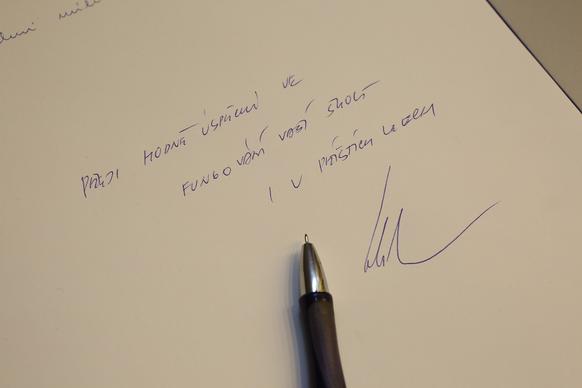 PŘEJI HODNĚ ÚSPĚCHŮ VE
FUNGOVÁNÍ VAŠÍ ŠKOLY
I V PŘÍŠTÍCH LETECH